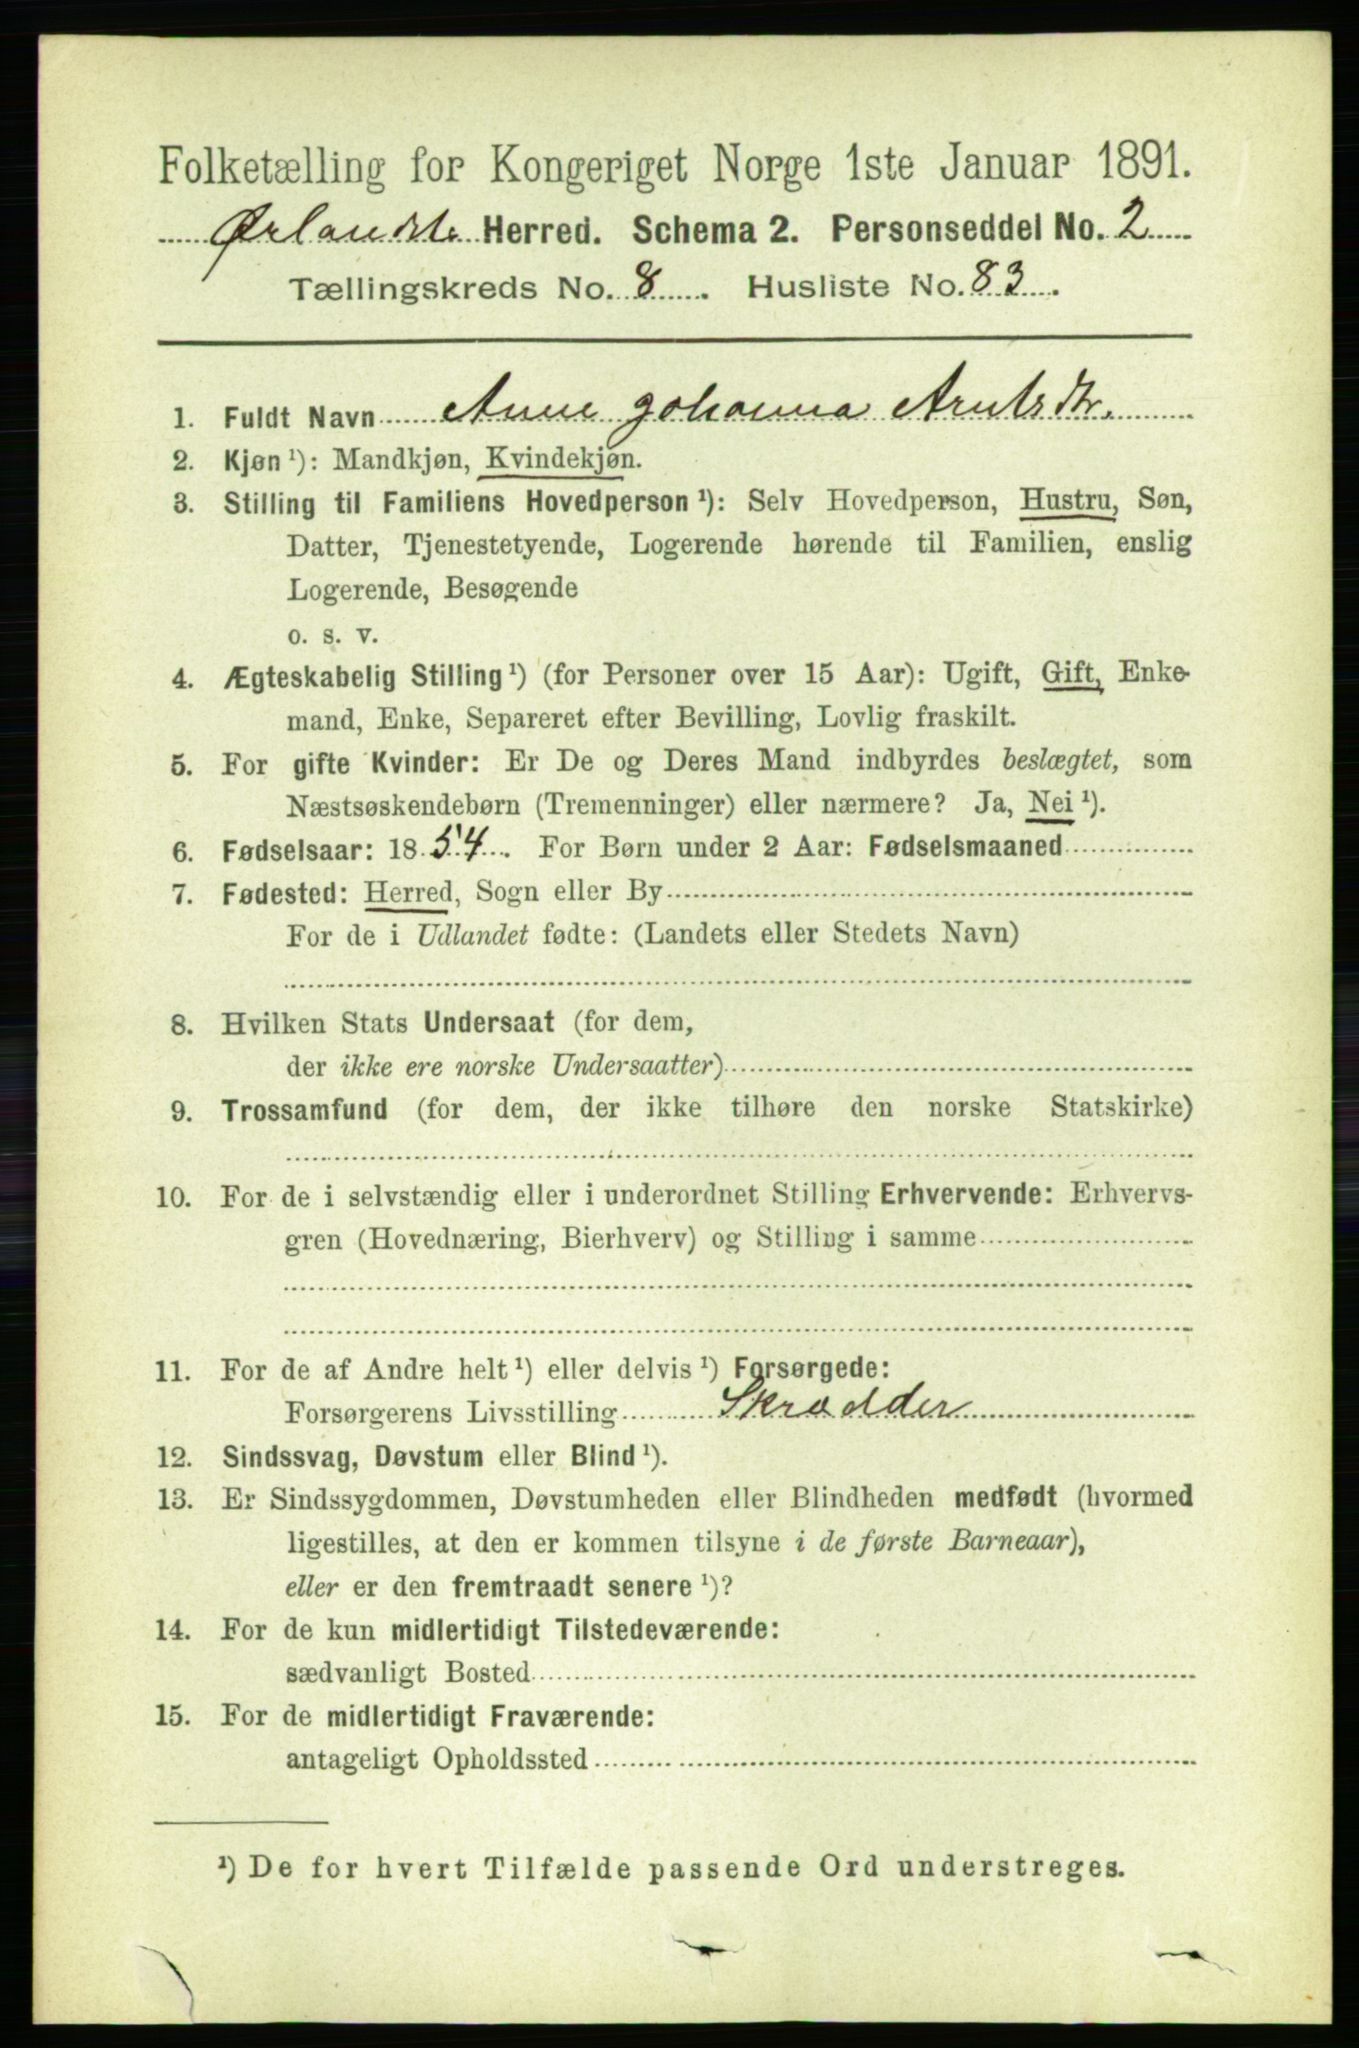 Folketælling for Kongeriget Norge 1ste Januar 1891.
Ørlandets Herred. Schema 2. Personseddel No. 2
Tællingskreds No. 8. Husliste No. 83.
1. Fuldt Navn Anne Johanna Arntsdtr.
2. Kjøn ¹): Mandkjøn, Kvindekjøn.
3. Stilling til Familiens Hovedperson ¹): Selv Hovedperson, Hustru, Søn,
Datter, Tjenestetyende, Logerende hørende til Familien, enslig
Logerende, Besøgende
o. s. v.
4. Ægteskabelig Stilling ¹) (for Personer over 15 Aar): Ugift, Gift, Enke-
mand, Enke, Separeret efter Bevilling, Lovlig fraskilt.
5. For gifte Kvinder: Er De og Deres Mand indbyrdes beslægtet, som
Næstsøskendebørn (Tremenninger) eller nærmere? Ja, Nei ¹).
6. Fødselsaar: 1854. For Børn under 2 Aar: Fødselsmaaned
7. Fødested: Herred, Sogn eller By
For de i Udlandet fødte: (Landets eller Stedets Navn)
8. Hvilken Stats Undersaat (for dem,
der ikke ere norske Undersaatter)
9. Trossamfund (for dem, der ikke tilhøre den norske Statskirke)
10. For de i selvstændig eller i underordnet Stilling Erhvervende: Erhvervs-
gren (Hovednæring, Bierhverv) og Stilling i samme
11. For de af Andre helt ¹) eller delvis ¹) Forsørgede:
Forsørgerens Livsstilling Skrædder
12. Sindssvag, Døvstum eller Blind ¹).
13. Er Sindssygdommen, Døvstumheden eller Blindheden medfødt (hvormed
ligestilles, at den er kommen tilsyne i de første Barneaar),
eller er den fremtraadt senere ¹)?
14. For de kun midlertidigt Tilstedeværende:
sædvanligt Bosted
15. For de midlertidigt Fraværende:
antageligt Opholdssted
¹) De for hvert Tilfælde passende Ord understreges.